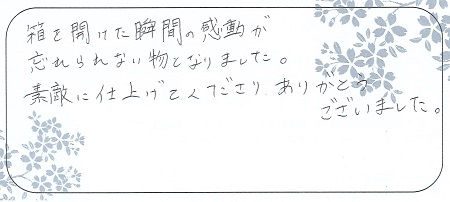 箱を開けた瞬間の感動が
忘れられない物となりました。
素敵に仕上げてくださり ありがとう
ございました。